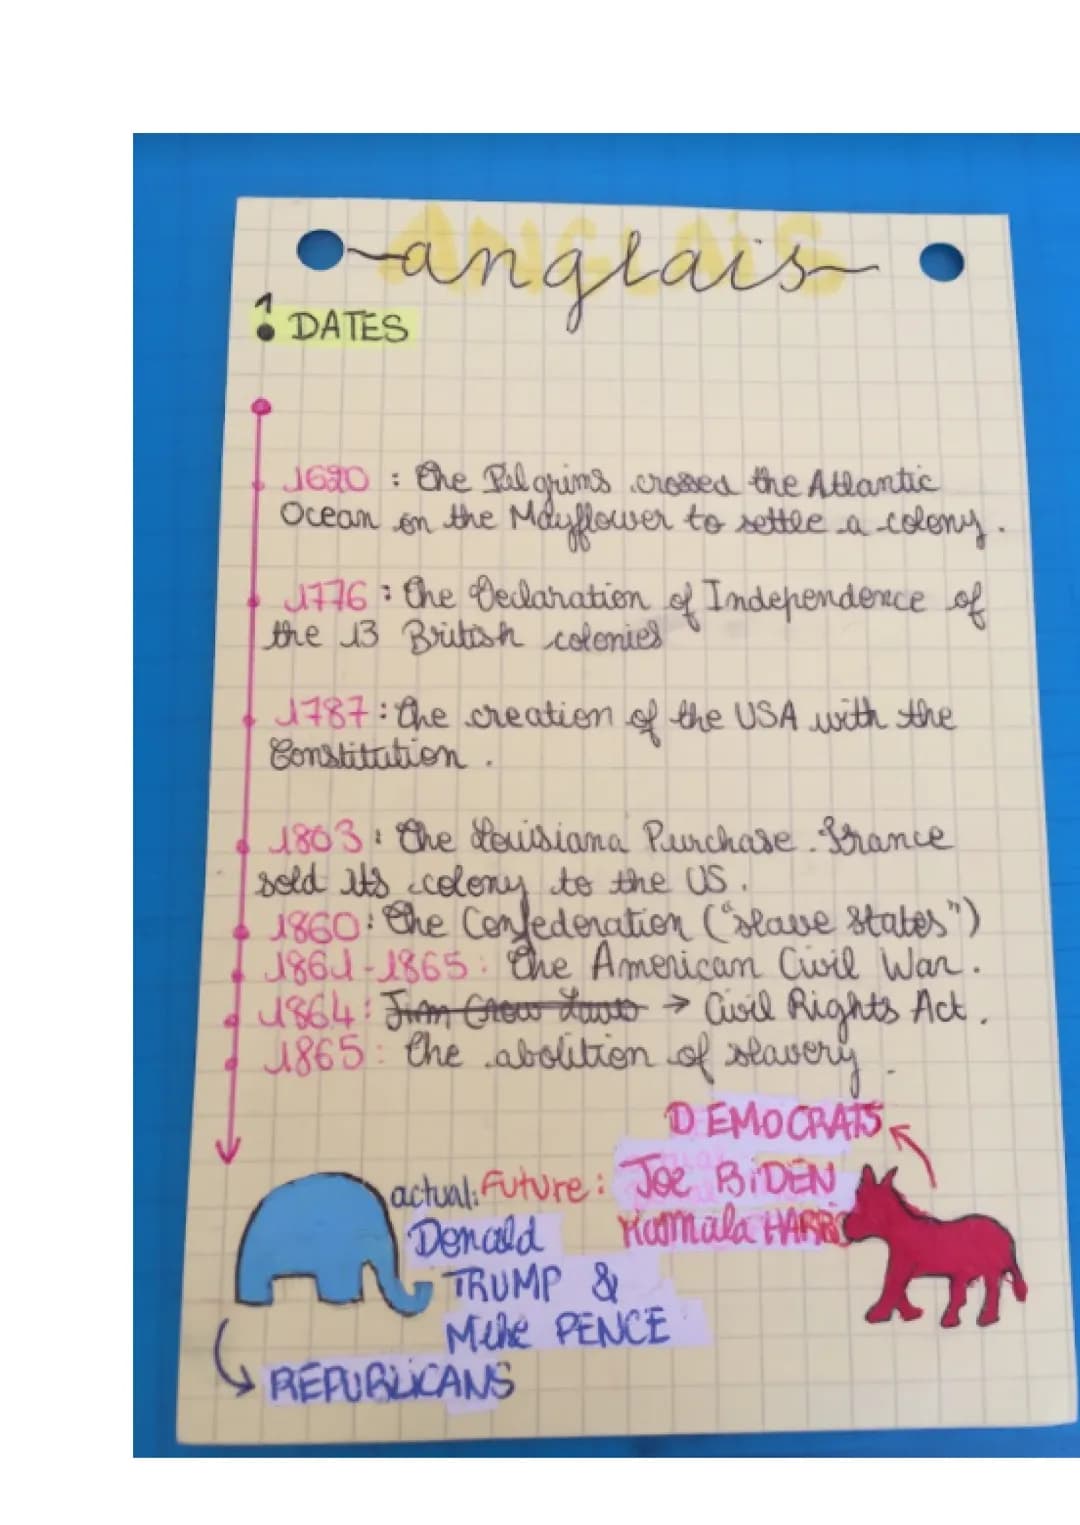 ANGLAIS
anglais
1. DATES
1620 : The Pilgrims crossed the Atlantic
Ocean on the Mayflower to settle a colony.
1776 : The Declaration of Independence of
the 13 British colonies
1787 : The creation of the USA with the
Constitution.
1803 : The Louisiana Purchase. France
sold its colony to the US.
1860 : The Confederation ("slave states")
1861-1865 : The American Civil War.
1864 : Jim Crow Laws → Civil Rights Act.
1865 : The abolition of slavery.
DEMOCRATS
actual: Future : Joe BIDEN
Donald Kamala HARRIS
TRUMP &
Mike PENCE
REPUBLICANS